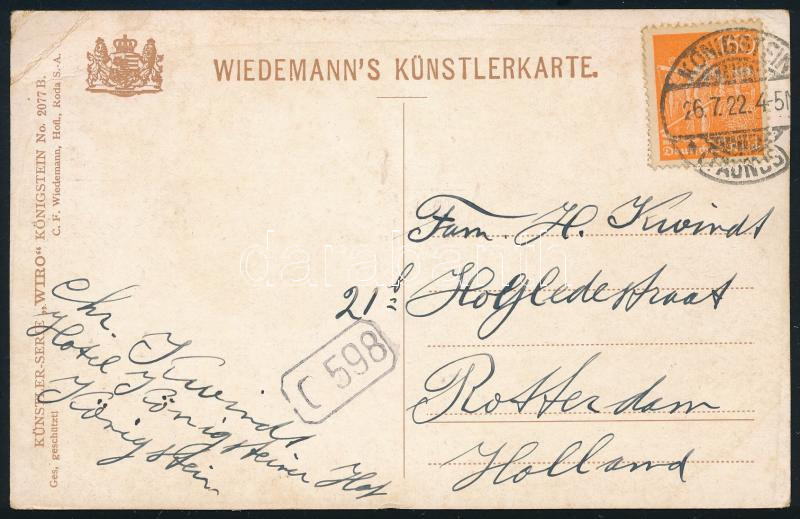 WIEDEMANN'S KÜNSTLERKARTE.
KÖNIGSTEIN
26.7.22.4-5N
(TAUNUS)
KÜNSTLER-SERIE „WIRO" KÖNIGSTEIN No. 2077 B.
Ges. geschützt! C. F. Wiedemann, Hofl., Roda S.-A.
Fam. H. Kwindt
21 Hogledestraat
Rotterdam
Holland
C 598
chr. Kwindt
Hotel Königsteiner Hof
Königstein
darabanth